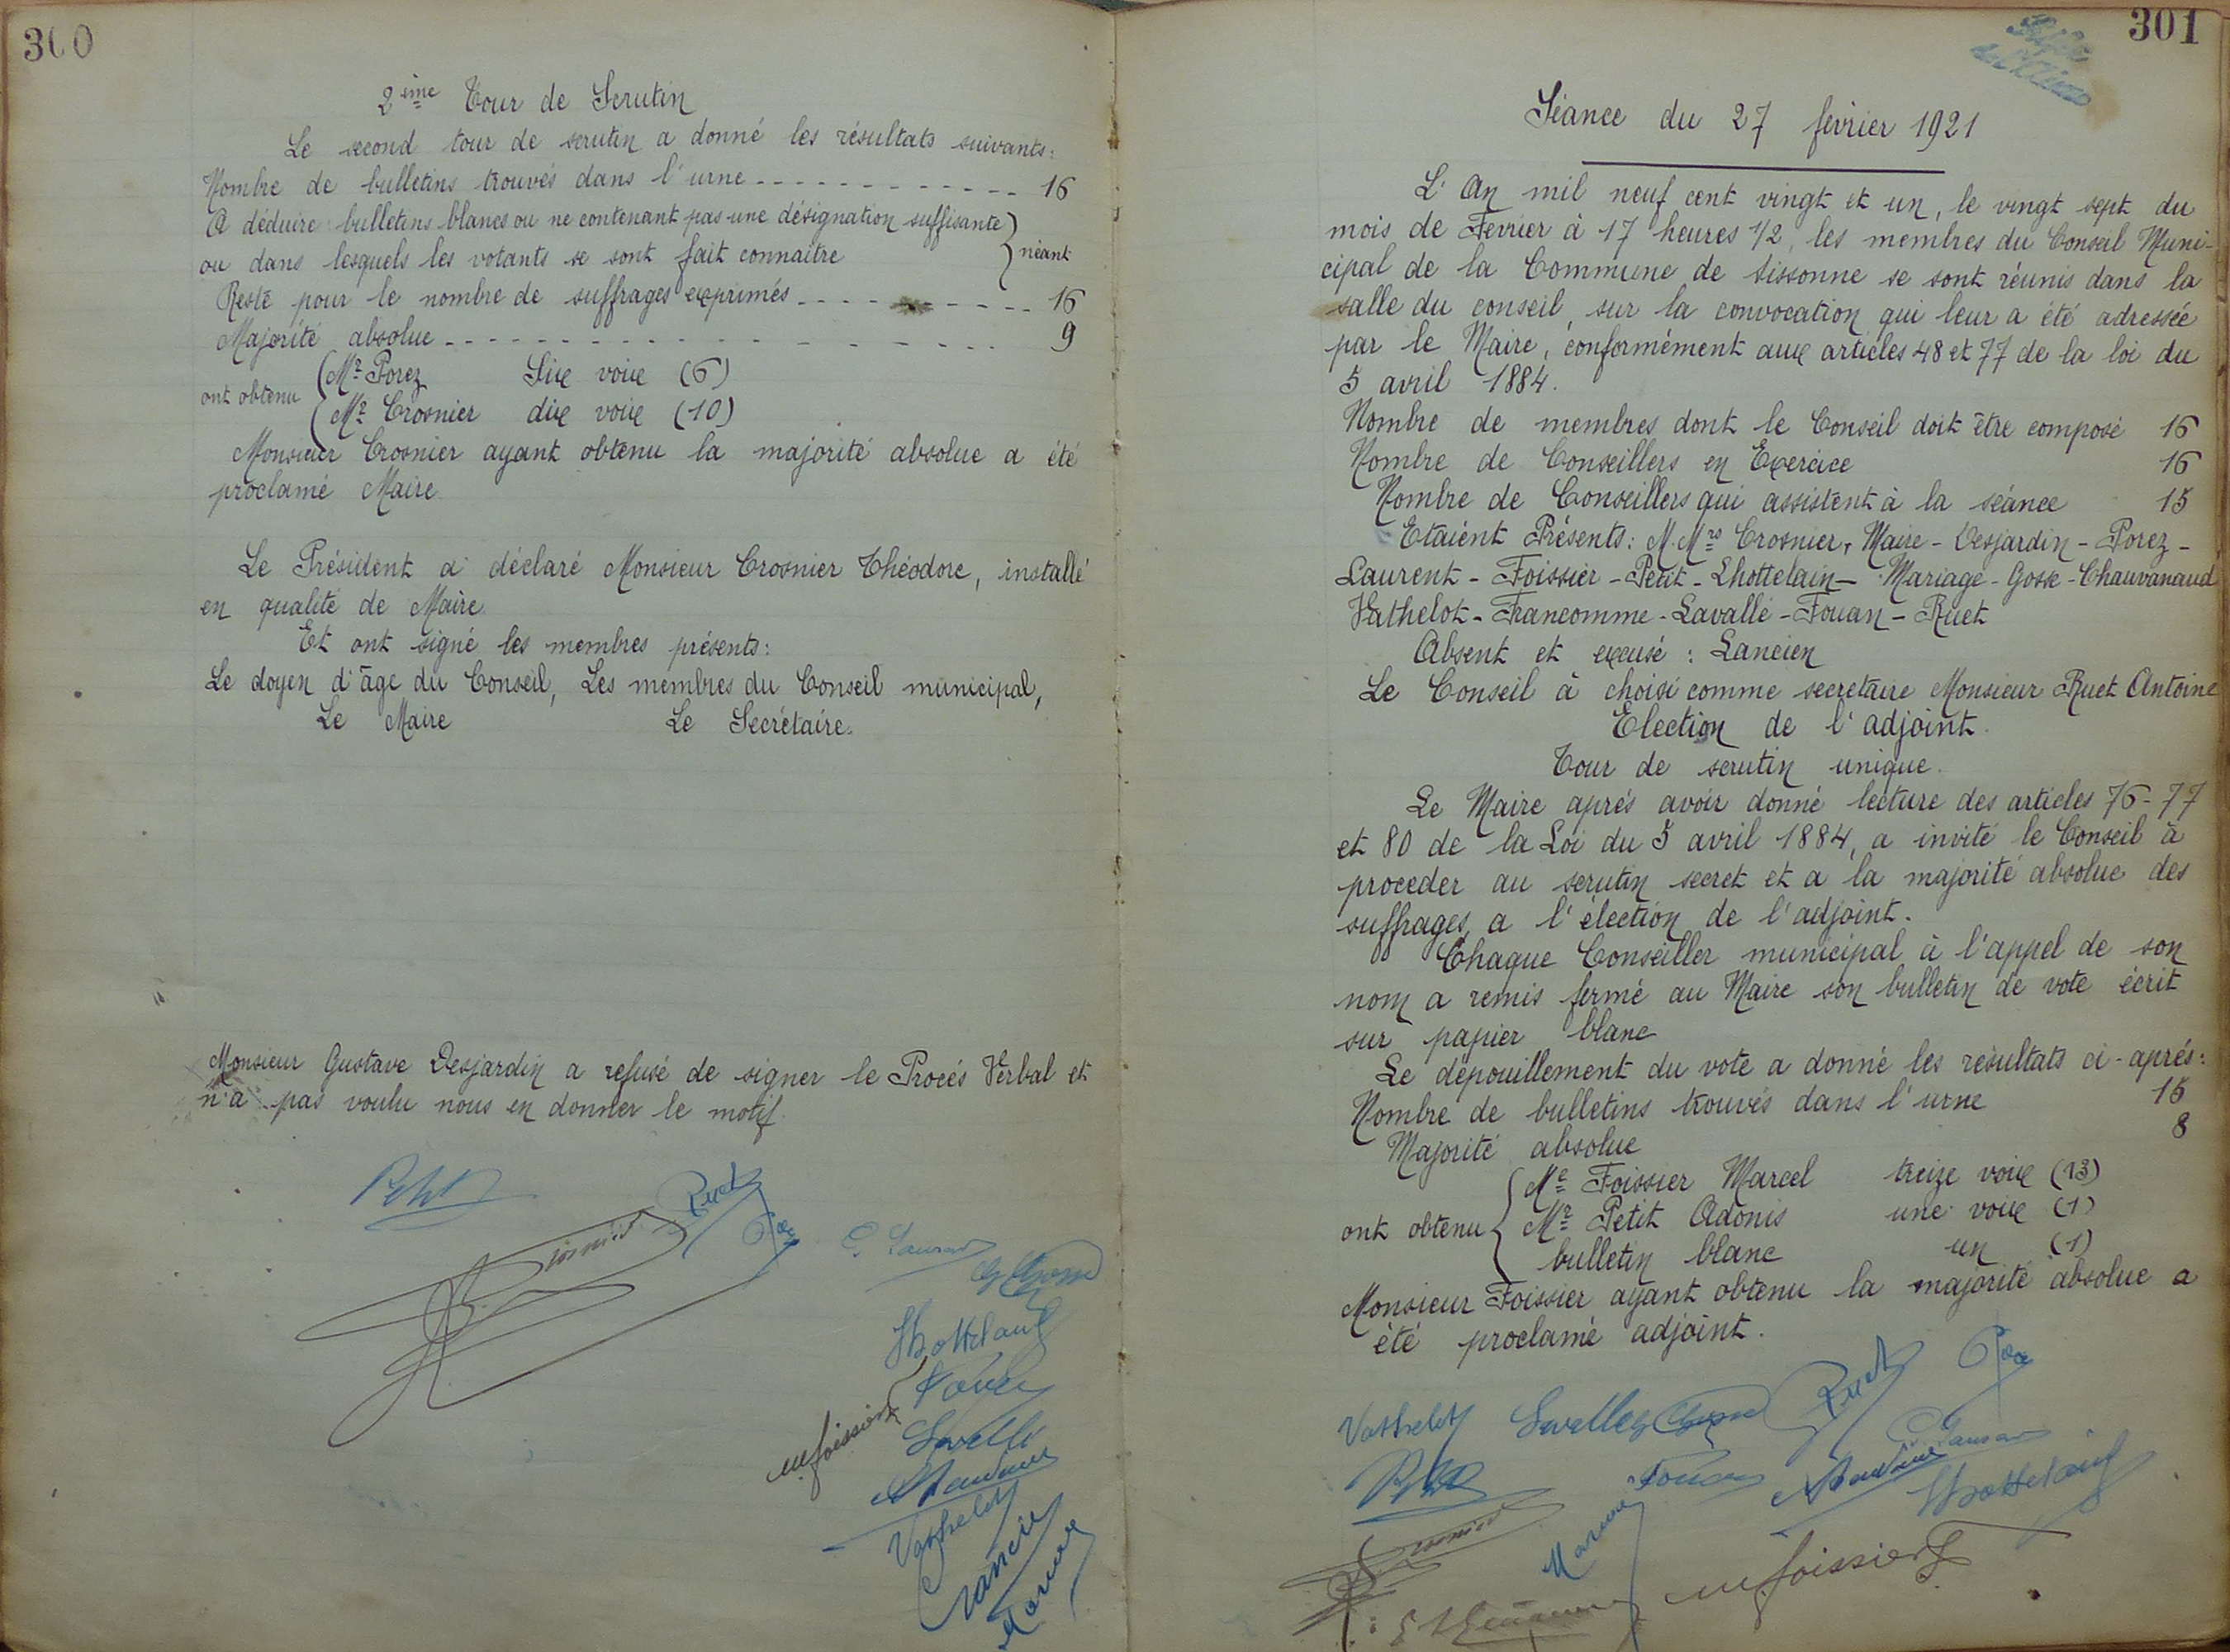 300
2ème Tour de Scrutin
Le second tour de scrutin a donné les résultats suivants:
Nombre de bulletins trouvés dans l'urne - - - - - - - - - - - - - 16
A déduire bulletins blancs ou ne contenant pas une désignation suffisante
ou dans lesquels les votants se sont fait connaître } néant
Reste pour le nombre de suffrages exprimés - - - - - - - - - - 16
Majorité absolue - - - - - - - - - - - - - - - - - - - - 9
ont obtenu { Mr Porez Six voix (6)
Mr Crosnier dix voix (10)
Monsieur Crosnier ayant obtenu la majorité absolue a été
proclamé Maire
Le Président a déclaré Monsieur Crosnier Théodore, installé
en qualité de Maire.
Et ont signé les membres présents:
Le doyen d'âge du Conseil, Les membres du Conseil municipal,
Le Maire Le Secrétaire.
Monsieur Gustave Desjardin a refusé de signer le Procés Verbal et
n'a pas voulu nous en donner le motif.
Petit
Ruet
Crosnier
C. Laurent
G Gosse
Lhottelain
Fouan
mfoissier
Lavallé
Vathelot
Lancien
Mariage
301
Séance du 27 février 1921
L'An mil neuf cent vingt et un, le vingt sept du
mois de Février à 17 heures 1/2, les membres du Conseil Muni-
cipal de la Commune de Sissonne se sont réunis dans la
salle du conseil, sur la convocation qui leur a été adressée
par le Maire, conformément aux articles 48 et 77 de la loi du
5 avril 1884.
Nombre de membres dont le Conseil doit être composé 16
Nombre de Conseillers en Exercice 16
Nombre de Conseillers qui assistent à la séance 15
Etaient Présents: M.Mrs Crosnier, Maire - Desjardin - Porez -
Laurent - Foissier - Petit - Lhottelain - Mariage - Gosse - Chauvanaud
Vathelot - Francomme - Lavallé - Fouan - Ruet
Absent et excusé : Lancien
Le Conseil à choisi comme secretaire Monsieur Ruet Antoine
Election de l'adjoint.
Tour de scrutin unique.
Le Maire aprés avoir donné lecture des articles 76-77
et 80 de la Loi du 5 avril 1884, a invité le Conseil à
proceder au scrutin secret et a la majorité absolue des
suffrages, a l'élection de l'adjoint.
Chaque Conseiller municipal à l'appel de son
nom a remis fermé au Maire son bulletin de vote écrit
sur papier blanc
Le dépouillement du vote a donné les résultats ci-aprés:
Nombre de bulletins trouvés dans l'urne 15
Majorité absolue 8
ont obtenu { Mr Foissier Marcel treize voix (13)
Mr Petit Adonis une voix (1)
bulletin blanc un (1)
Monsieur Foissier ayant obtenu la majorité absolue a
été proclamé adjoint.
Vathelot Lavallé G Gosse Ruet
Petit Fouan C. Laurent
Lhottelain
Crosnier Mariage mfoissier